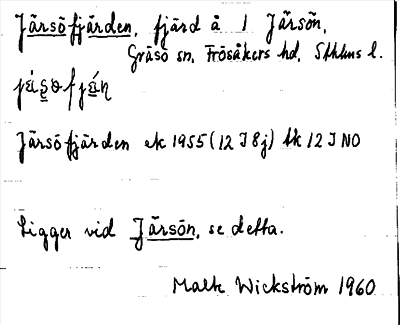 Järsöfjärden, fjärd å 1 Järsön,
Gräsö sn, Frösåkers hd, Sthlms l.
Järsöfjärden ek 1955 (12 I 8j) tk 12 I NO
Ligger vid Järsön, se detta.
Malte Wickström 1960